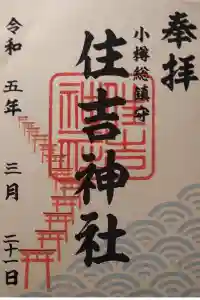 奉拝
小樽総鎮守
住吉神社
令和五年三月二十一日